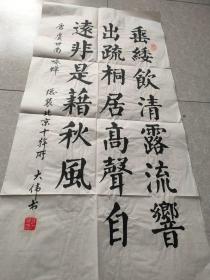 垂緌飲清露流響
出疏桐居高聲自
遠非是藉秋風
唐虞世南詠蟬
北京十稈所
大偉書